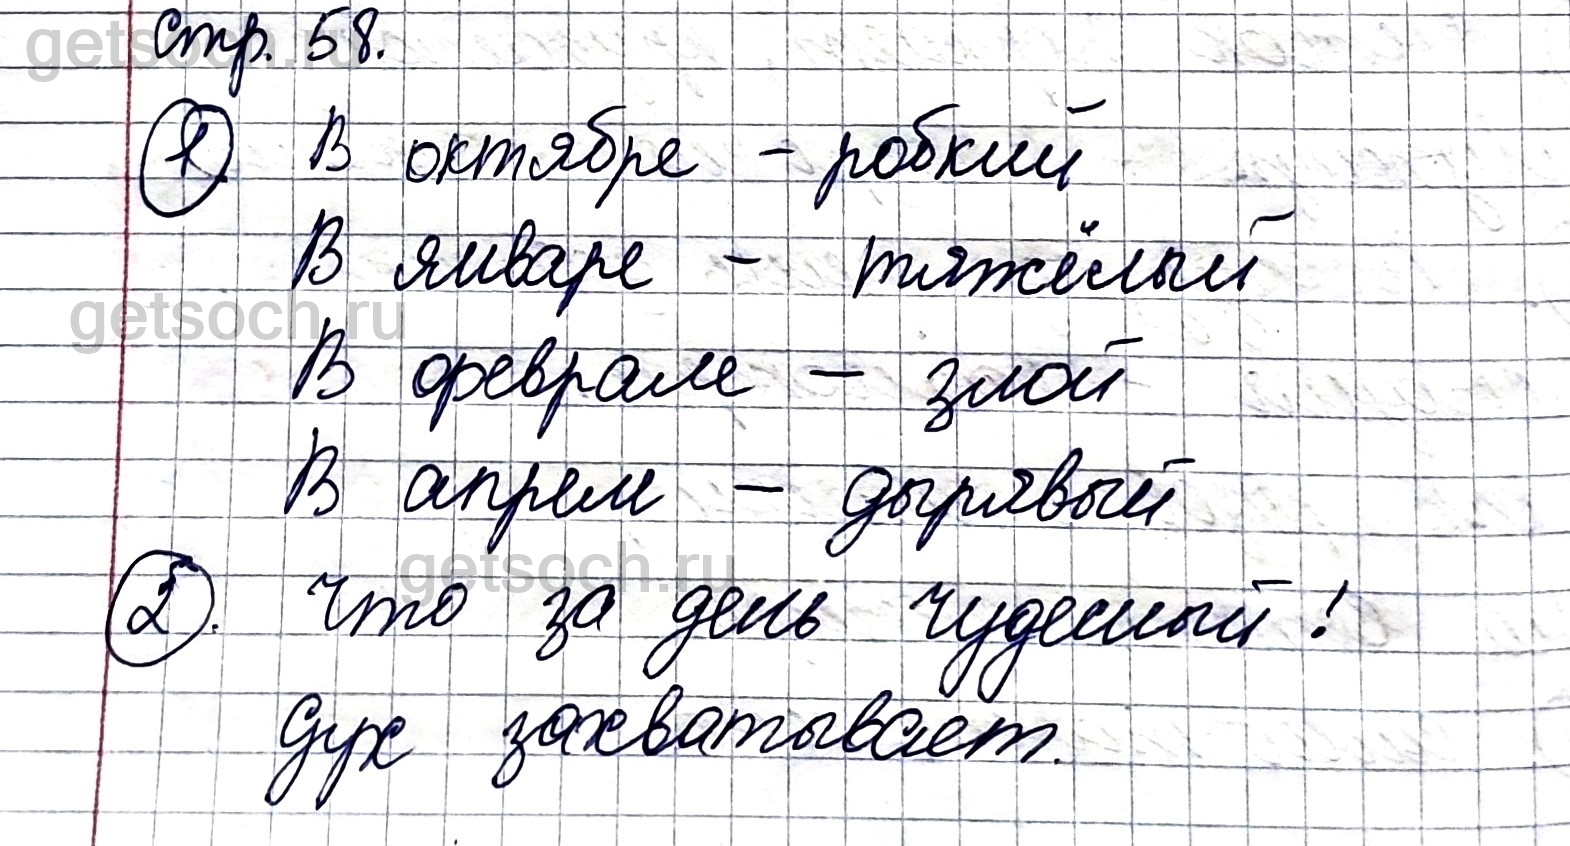 Стр. 58.
1. В октябре - робкий
В январе - тяжёлый
В феврале - злой
В апреле - дырявый
2. Что за день чудесный!
Дух захватывает.
getsoch.ru
getsoch.ru
getsoch.ru